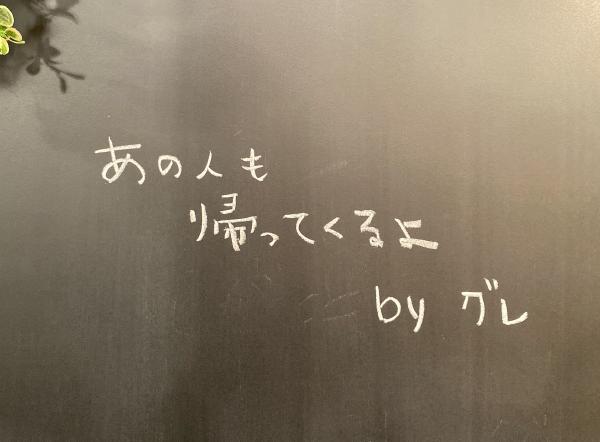 あの人も
帰ってくるよ
by グレ